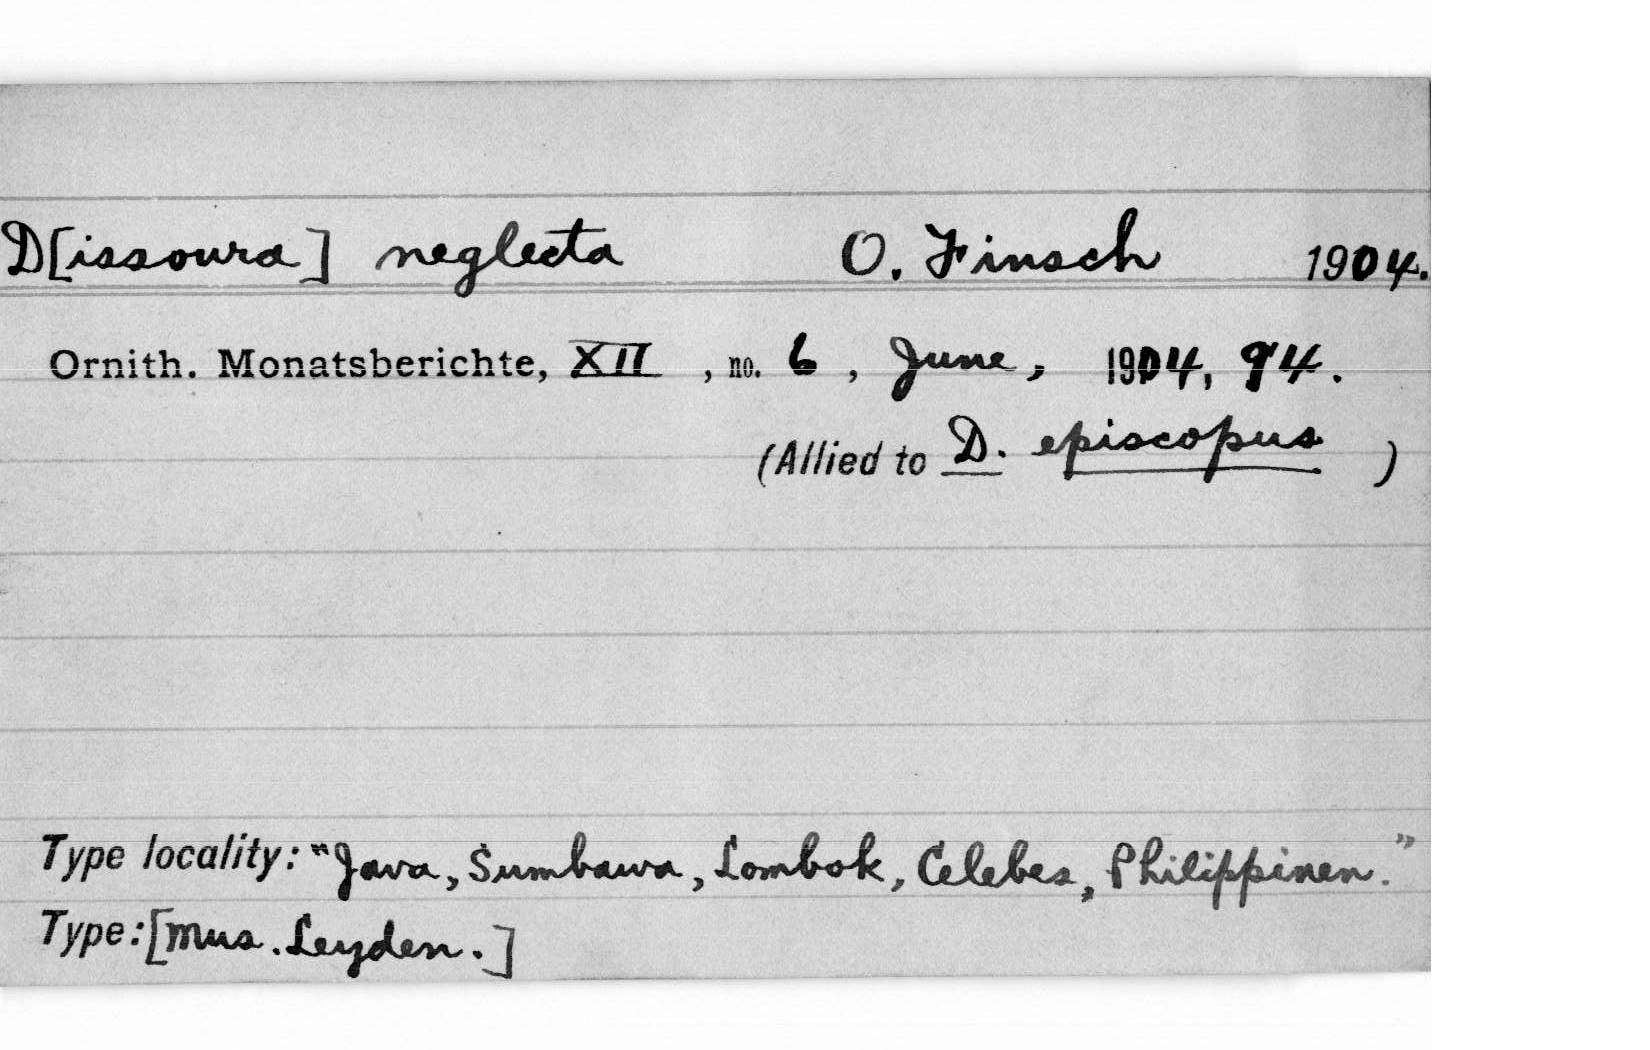 D[issoura] neglecta O. Finsch 1904.
Ornith. Monatsberichte, XII, no. 6, June, 1904, 94.
(Allied to D. episcopus)
Type locality: "Java, Sumbawa, Lombok, Celebes, Philippinen."
Type: [Mus. Leyden.]